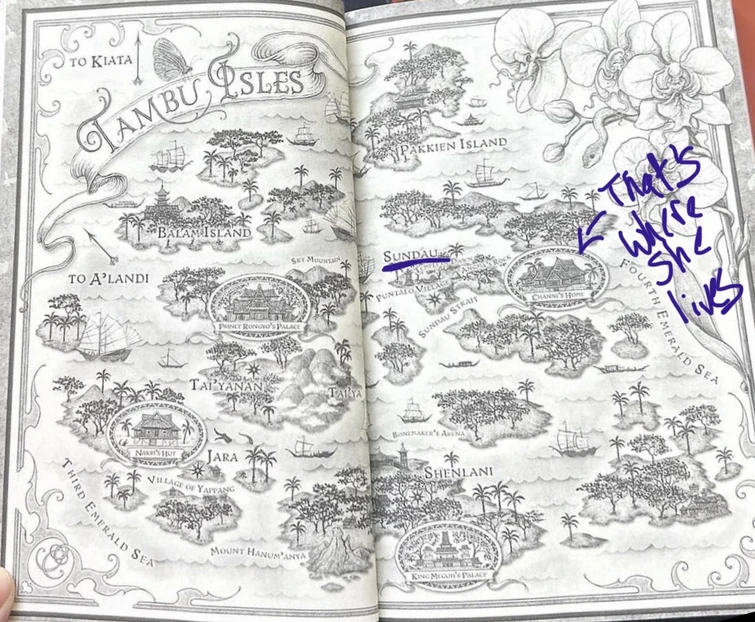 TO KIATA
TAMBU ISLES
BALAM ISLAND
TO A'LANDI
SKY MOUNTAIN
PRINCE RONGYO'S PALACE
TAI'YANAN
TAI'YA
NAKRI'S HUT
JARA
VILLAGE OF YAPPANG
THIRD EMERALD SEA
MOUNT HANUM'ANYA
PAKKIEN ISLAND
SUNDAU
PUNTALO VILLAGE
SUNDAU STRAIT
CHANNI'S HOME
FOURTH EMERALD SEA
That's
where
she
lives
BONEMAKER'S ARENA
SHENLANI
KING MEGUH'S PALACE